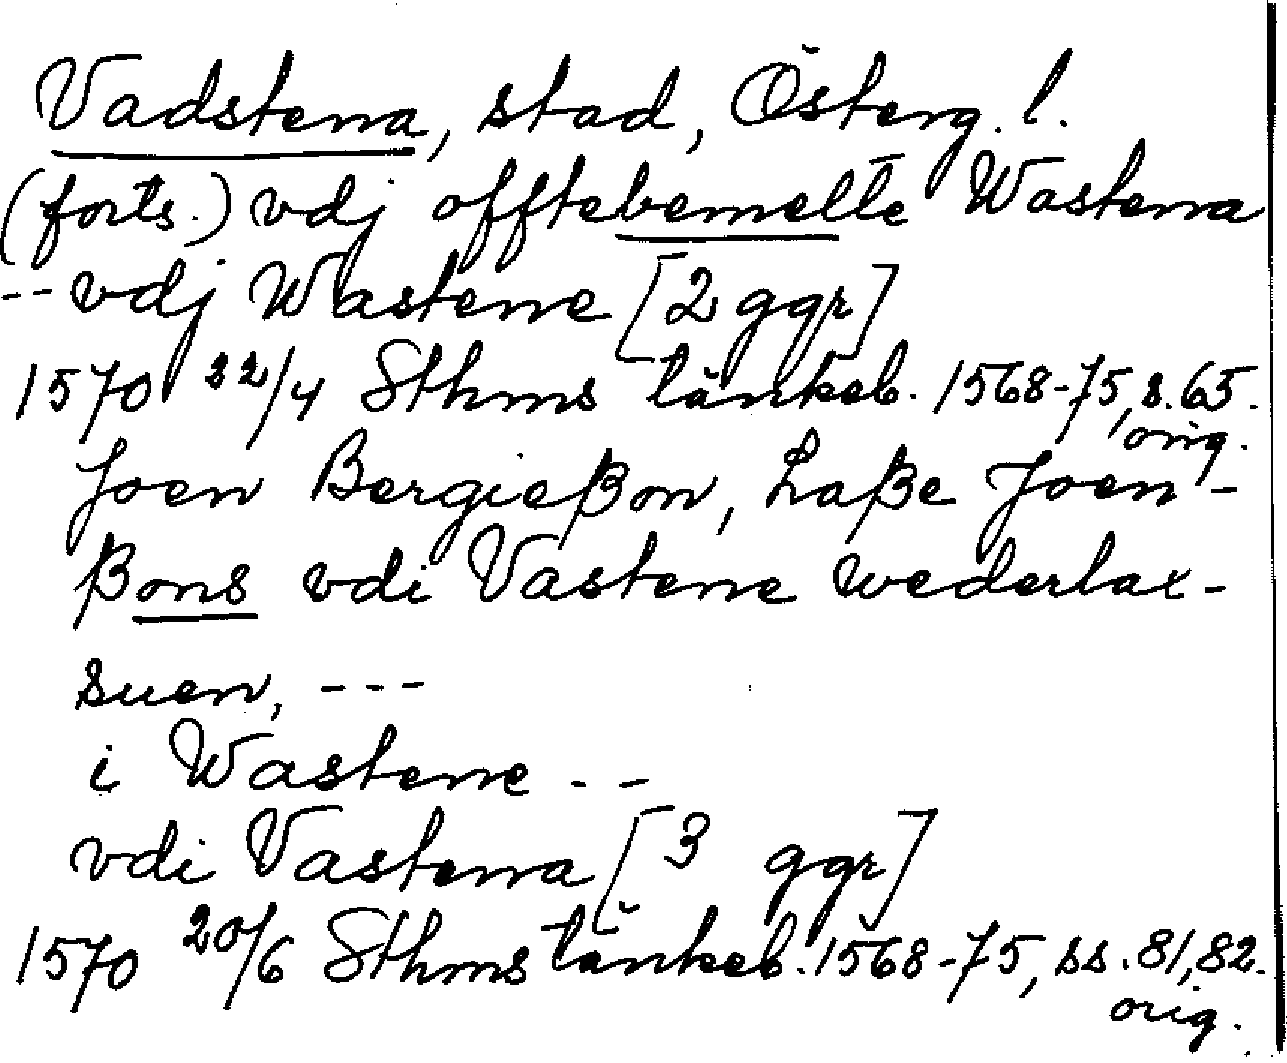 Vadstena, stad, Österg. l.
(forts.) vdj offtebemelte Wastena
-- vdj Wastene [2 ggr]
1570 22/4 Sthms tänkeb. 1568-75, s. 65.
orig.
Joen Bergießon, Laße Joen-
ßons vdi Vastene wederlax-
suen, ---
i Wastene --
vdi Vastena [3 ggr]
1570 20/6 Sthms tänkeb. 1568-75, ss. 81, 82.
orig.